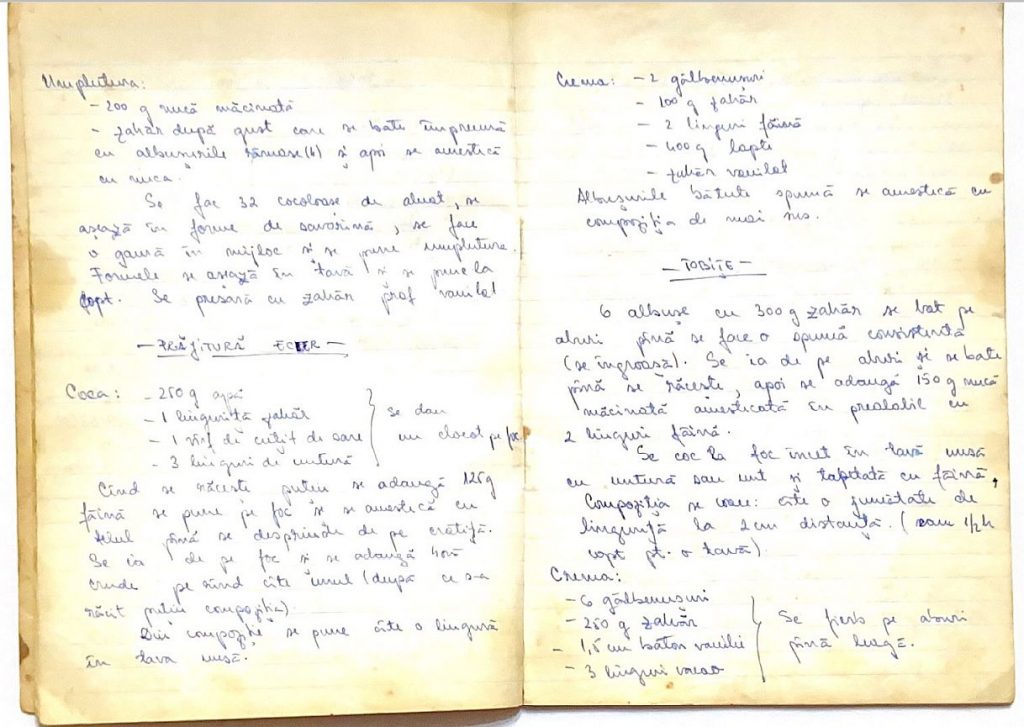 Umplutura:
- 200 g nucă măcinată
- zahăr după gust care se bate împreună
cu albușurile rămase(4) și apoi se amestică
cu nuca.
Se fac 32 cocoloașe de aluat, se
așează în forme de savarină, se face
o gaură în mijloc și se pune umplutura.
Formele se așează în tavă și se pune la
copt. Se presară cu zahăr praf vanilat
- PRĂJITURĂ ECLER -
Coca: - 250 g apă
- 1 linguriță zahăr
- 1 vîrf de cuțit de sare
- 3 linguri de untură
Se dau
un clocot pe foc
Cînd se răcește puțin se adaugă 125g
făină se pune pe foc și se amestică cu
telul pînă se desprinde de pe cratiță.
Se ia de pe foc și se adaugă 4 ouă
crude pe rînd cîte unul (după ce s-a
răcit puțin compoziția)
Din compoziție se pune cîte o lingură
în tava unsă.
Crema: - 2 gălbenușuri
- 100 g zahăr
- 2 linguri făină
- 400 g lapte
- zahăr vanilat
Albușurile bătute spumă se amestică cu
compoziția de mai sus.
- TOBIȚE -
6 albușe cu 300 g zahăr se bat pe
aburi pînă se face o spumă consistentă
(se îngroașă). Se ia de pe aburi și se bate
pînă se răcește, apoi se adaugă 150 g nucă
măcinată amesticată în prealabil cu
2 linguri făină.
Se coc la foc încet în tavă unsă
cu untură sau unt și tapetată cu făină,
Compoziția se coace: cîte o jumătate de
linguriță la 2cm distanță. (cam 1/2 h
copt pt. o tavă).
Crema:
- 6 gălbenușuri
- 250 g zahăr
- 1,5 cm baton vanilie
- 3 linguri cacao
Se fierb pe aburi
pînă leagă.